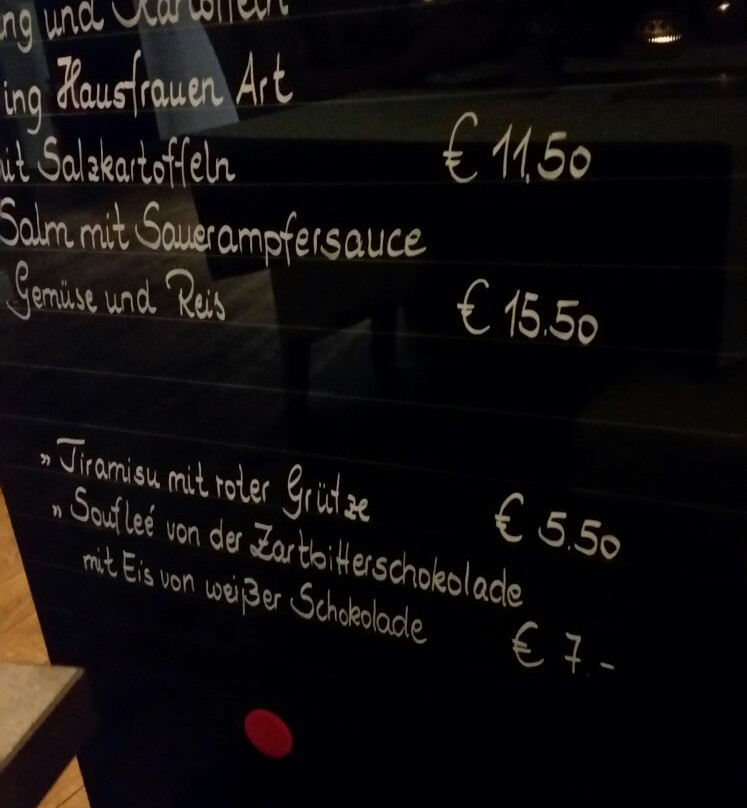 ng und Kartoffeln
ing Hausfrauen Art
mit Salzkartoffeln € 11,50
Salm mit Sauerampfersauce
Gemüse und Reis € 15.50
" Tiramisu mit roter Grütze € 5.50
" Soufleé von der Zartbitterschokolade
mit Eis von weißer Schokolade € 7.-